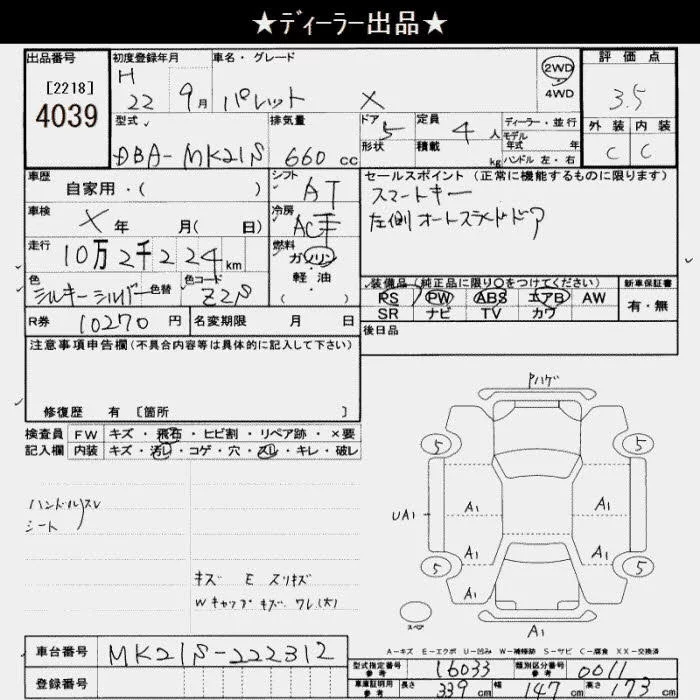 ★ディーラー出品★
出品番号
[2218]
4039
初度登録年月
H 22 9月
車名・グレード
パレット X
2WD
4WD
評価点
3.5
外装 内装
C C
型式
DBA-MK21S
排気量
660 cc
ドア
5
形状
定員
4 人
積載
kg
ディーラー・並行
モデル
年式 年
ハンドル 左・右
車歴
自家用・( )
シフト
AT
セールスポイント (正常に機能するものに限ります)
スマートキー
左側オートスライドドア
車検
X 年 月( 日)
冷房
AC
走行
10万2千224 km
燃料
ガソリン
軽・油
( )
色
シルキーシルバー
色替
色コード
Z2S
装備品 (純正品に限り〇をつけてください)
PS PW ABS エアB AW
SR ナビ TV カワ
新車保証書
有・無
R券
10270 円
名変期限 月 日
後日品
注意事項申告欄(不具合内容等は具体的に記入して下さい)
修復歴 有 [箇所 ]
検査員 FW キズ・飛石・ヒビ割・リペア跡・×要
記入欄 内装 キズ・汚レ・コゲ・穴・スレ・キレ・破レ
ハンドルスレ
シート
キズ E スリキズ
Wキャップキズ ワレ(大)
Pハゲ
5 5
A1 A1
UA1
A1 A1
5 5
スペア
A1
A-キズ E-エクボ U-凹み W-補修跡 S-サビ C-腐食 XX-交換済
車台番号
MK21S-222312
登録番号
型式指定番号
参考
16033
類別区分番号
参考
0011
車庫証明用
参考
長さ 339 cm 幅 147 cm 高さ 173 cm